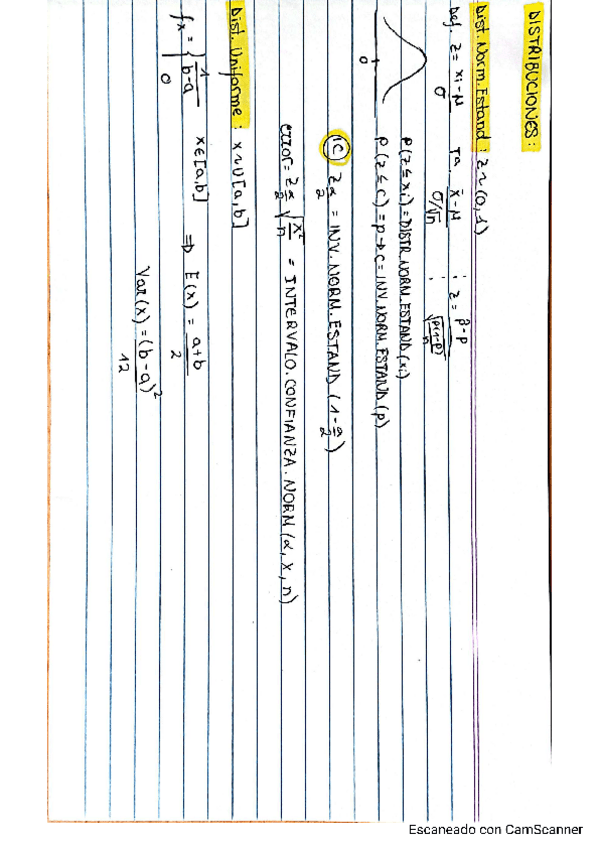 DISTRIBUCIONES:
Dist. Norm. Estand: z ~ (0,1)
Def. z = xi - μ / σ TC. x̄ - μ / σ/√n ; z = p̂ - p / √p(1-p)/n
P(z ≤ xi) = DISTR.NORM.ESTAND(xi)
P(z ≤ c) = p → c = INV.NORM.ESTAND(p)
0
IC zα/2 = INV.NORM.ESTAND(1 - α/2)
error = zα/2 √x²/n = INTERVALO.CONFIANZA.NORM(α, x, n)
Dist. Uniforme: x ~ U[a,b]
fx = { 1/b-a x ∈ [a,b] ⇒ E(x) = a+b/2
0
Var(x) = (b-a)²/12
Escaneado con CamScanner